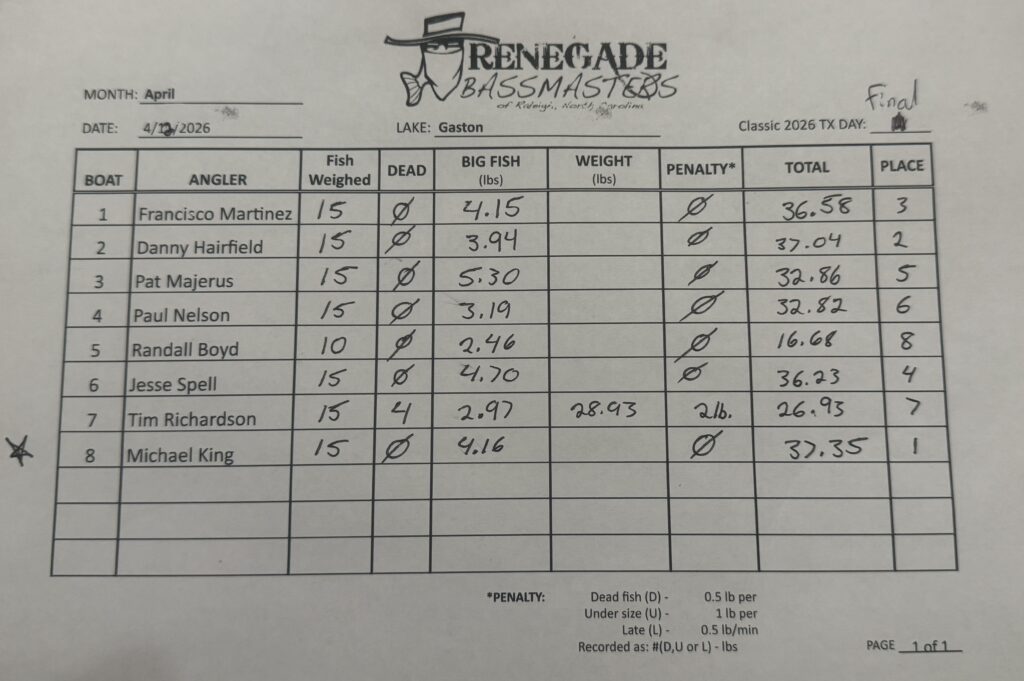 RENEGADE
BASSMASTERS
of Raleigh, North Carolina
MONTH: April
Final
DATE: 4/12/2026 LAKE: Gaston Classic 2026 TX DAY:
BOAT ANGLER Fish Weighed DEAD BIG FISH (lbs) WEIGHT (lbs) PENALTY* TOTAL PLACE
1 Francisco Martinez 15 Ø 4.15 Ø 36.58 3
2 Danny Hairfield 15 Ø 3.94 Ø 37.04 2
3 Pat Majerus 15 Ø 5.30 Ø 32.86 5
4 Paul Nelson 15 Ø 3.19 Ø 32.82 6
5 Randall Boyd 10 Ø 2.46 Ø 16.68 8
6 Jesse Spell 15 Ø 4.70 Ø 36.23 4
7 Tim Richardson 15 4 2.97 28.93 2lb. 26.93 7
8 Michael King 15 Ø 4.16 Ø 37.35 1
*PENALTY: Dead fish (D) - 0.5 lb per
Under size (U) - 1 lb per
Late (L) - 0.5 lb/min
Recorded as: #(D,U or L) - lbs
PAGE 1 of 1